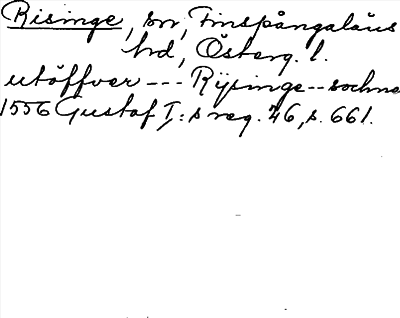 Risinge, sn, Finspångaläns
hd, Österg. l.
utöffver --- Rijsinge -- sochne
1556 Gustaf I:s reg. 26, s. 661.